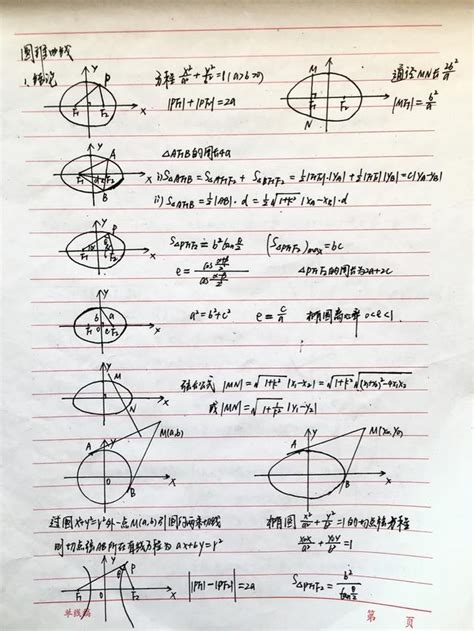 圆锥曲线
1. 椭圆 方程 x²/a² + y²/b² = 1 (a>b>0) 通径 MN长 2b²/a
|PF₁| + |PF₂| = 2a |MF₁| = b²/a
△AF₁B的周长4a
i) S△AF₁B = S△AF₁F₂ + S△BF₁F₂ = ½|F₁F₂|·|y_A| + ½|F₁F₂||y_B| = c|y_A-y_B|
ii) S△AF₁B = ½|AB|·d = ½√(1+k²) |x_A-x_B|·d
S△PF₁F₂ = b² tan θ/2 (S△PF₁F₂)max = bc
e = cos (α+β)/2 / cos (α-β)/2 △PF₁F₂的周长为2a+2c
a² = b²+c² e = c/a 椭圆离心率 0<e<1
弦长公式 |MN| = √(1+k²) |x₁-x₂| = √(1+k²) √((x₁+x₂)²-4x₁x₂)
或 |MN| = √(1+1/k²) |y₁-y₂|
M(a,b) M(x₀,y₀)
过圆x²+y²=r²外一点M(a,b)引圆的两条切线 椭圆 x²/a² + y²/b² = 1的切点弦方程
则切点弦AB所在直线方程为 ax+by=r² x₀x/a² + y₀y/b² = 1
|PF₁| - |PF₂| = 2a S△PF₁F₂ = b² / tan θ/2
第 页